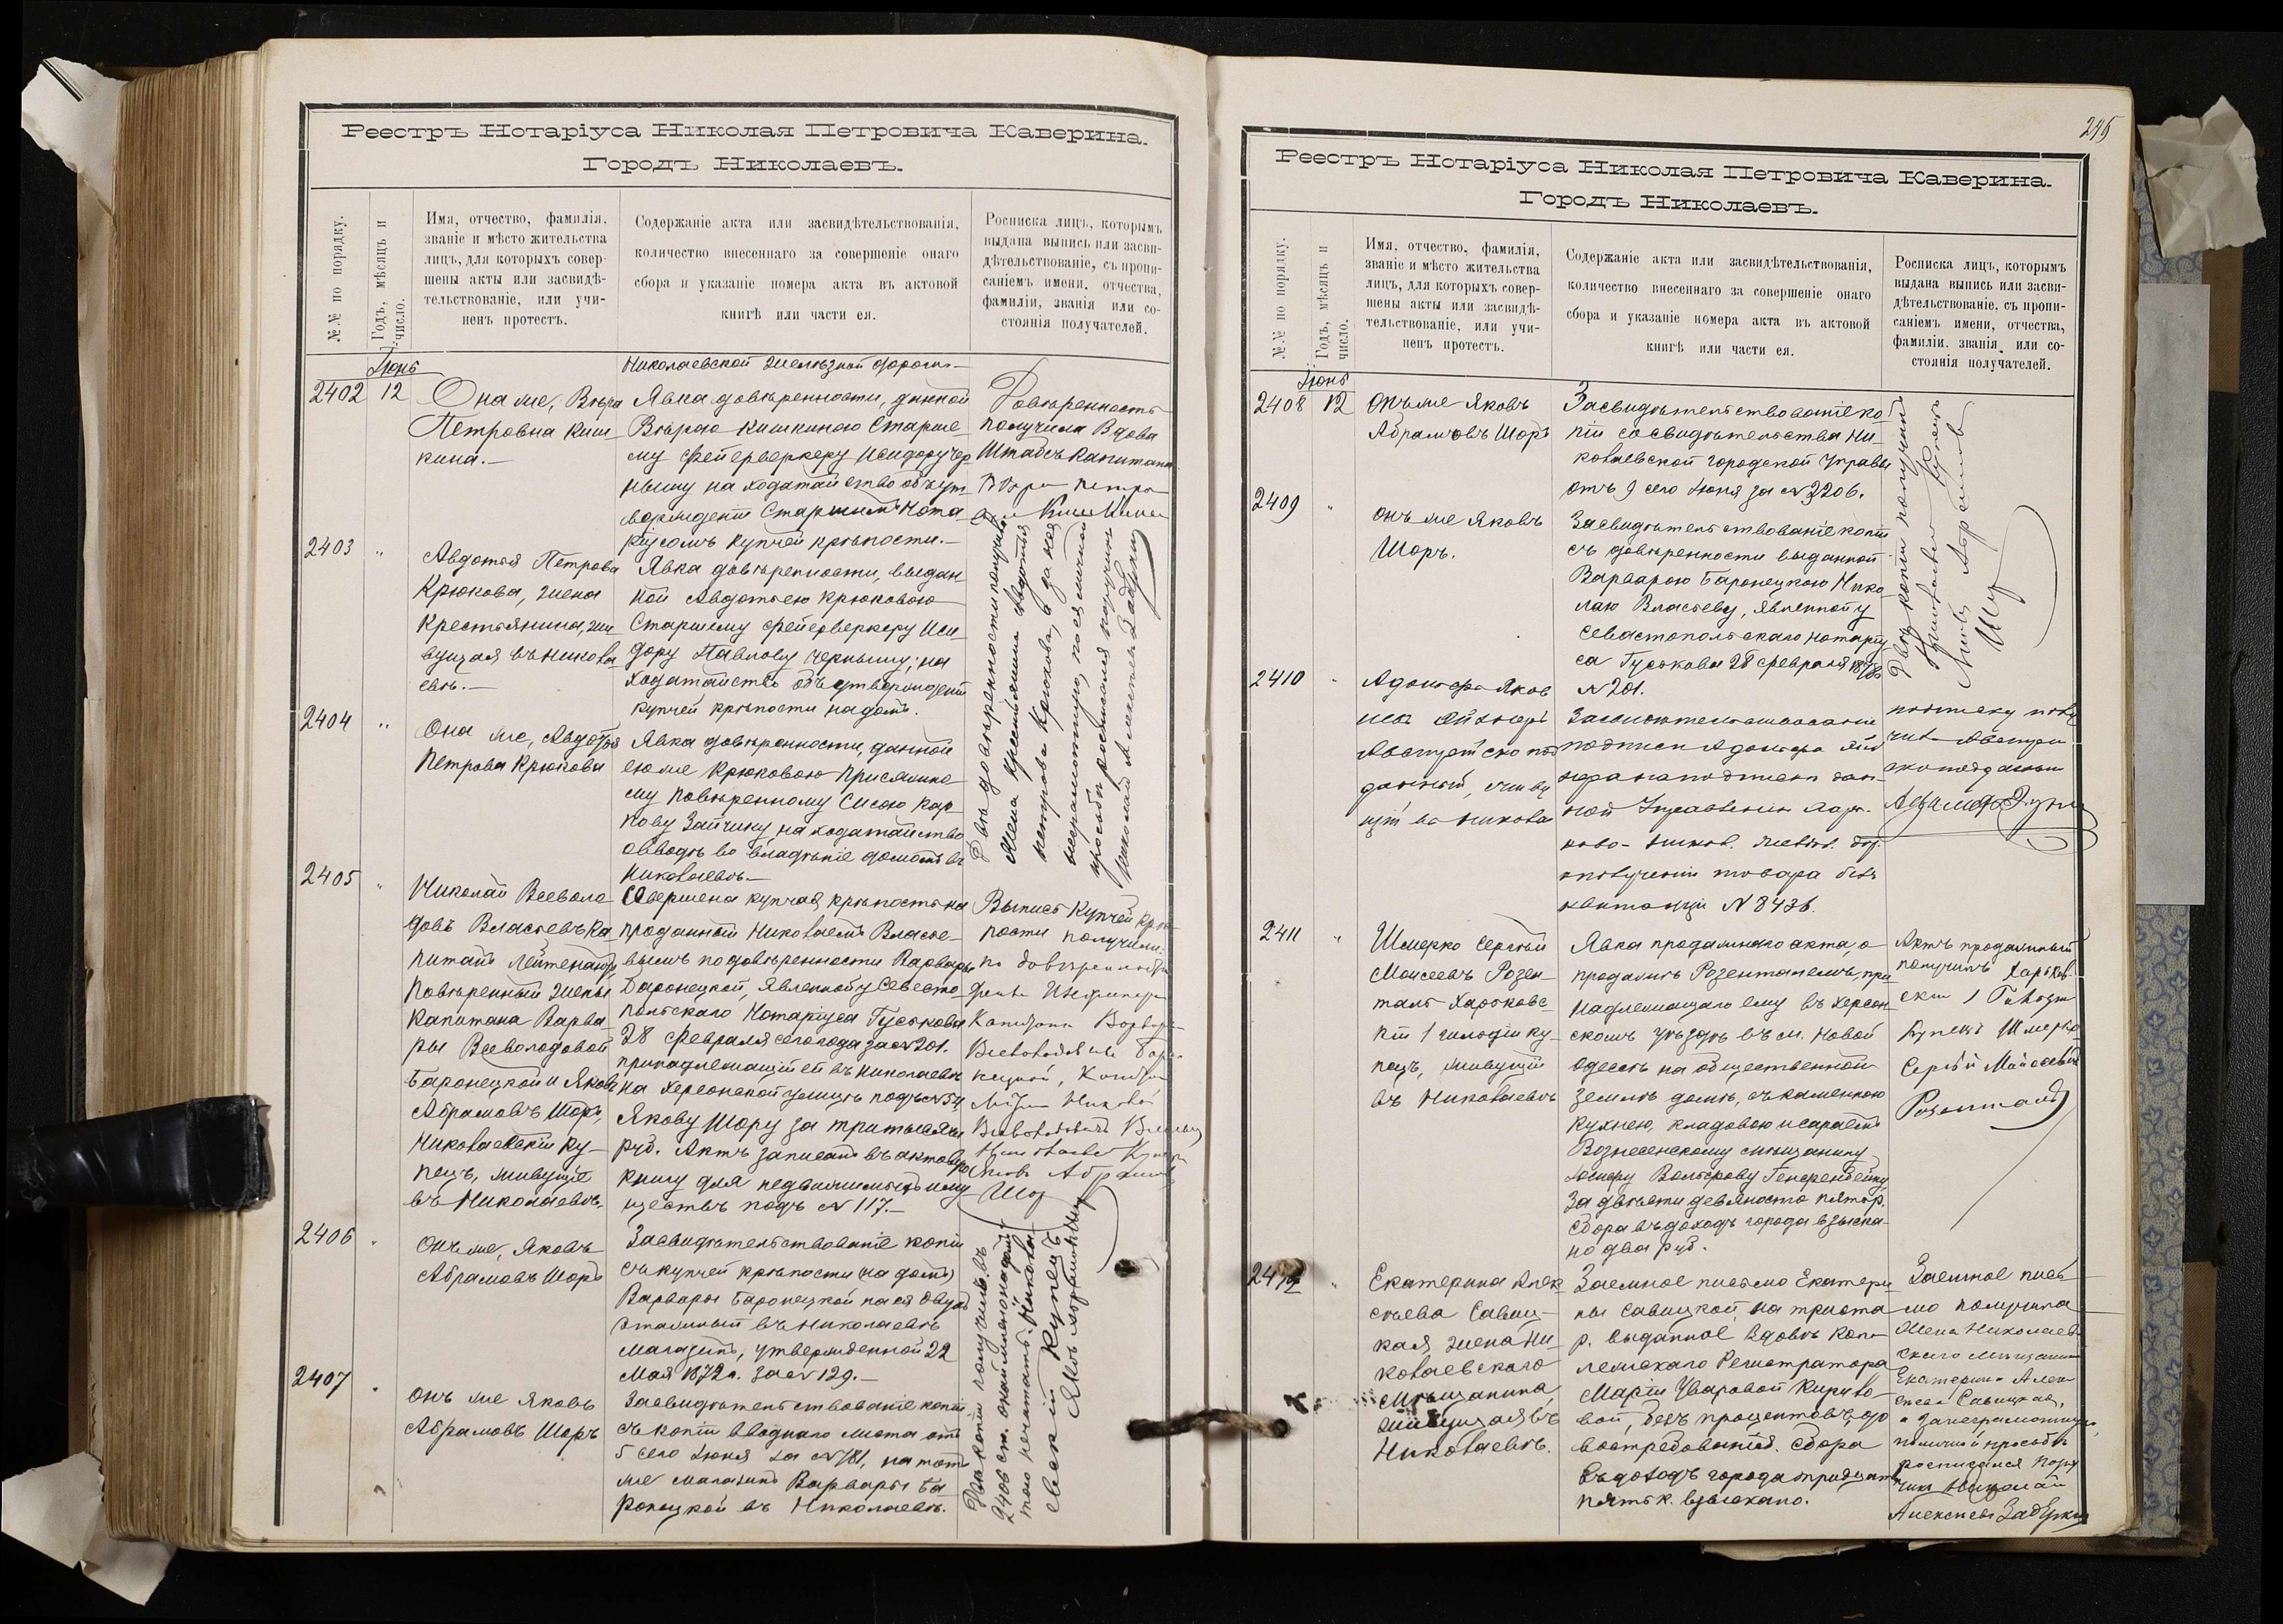 Реестръ Нотаріуса Николая Петровича Каверина.
Городъ Николаевъ.
№.№ по порядку.
Годъ, мѣсяцъ и
число.
Имя, отчество, фамилія,
званіе и мѣсто жительства
лицъ, для которыхъ совер-
шены акты или засвидѣ-
тельствованіе, или учи-
ненъ протестъ.
Содержаніе акта или засвидѣтельствованія,
количество внесеннаго за совершеніе онаго
сбора и указаніе номера акта въ актовой
книгѣ или части ея.
Росписка лицъ, которымъ
выдана выпись или засви-
дѣтельствованіе, съ пропи-
саніемъ имени. отчества,
фамиліи, званія или со-
стоянія получателей.
Іюнь
Николаевской желѣзной дороги.—
2402 12
Она же, Вѣра
Петровна Киш-
кина.—
Явка довѣренности, данной
Вѣрою Кишкиною Старше-
му фейерверкеру Исидору Чер
ному на ходатайство объ ут-
вержденіи Старшимъ Нота-
ріусомъ купчей крѣпости.—
Довѣренность
получила Вдова
Штабсъ Капитана
Вѣра Петро
Кишкина
2403 "
Авдотья Петрова
Крюкова, жена
крестьянина, жи-
вущая въ Никола
евѣ.—
Явка довѣренности, выдан
ной Авдотьею Крюковою
Старшему фейерверкеру Иси-
дору Павлову Черному, на
ходатайство объ утвержденіи
купчей крѣпости на домъ.
2404 "
Она же, Авдотья
Петрова Крюкова
Явка довѣренности, данной
ею же Крюковою Присяжно
му Повѣренному Сысою Кар-
пову Зайчику на ходатайство
о вводѣ во владѣніе домомъ въ
Николаевѣ.—
Двѣ довѣренности получила
Жена крестьянина Авдотья
Петрова Крюкова, а за нея
неграмотную, по ея личной
просьбѣ росписался поручикъ
Николай Алексѣевъ Задѣркій
2405 "
Николай Всеволо-
довъ Власьевъ Ка-
питанъ Лейтенантъ,
повѣренный жены
Капитана Варва-
ры Всеволодовой
Баронецкой и Яковъ
Абрамовъ Шоръ,
Николаевскій ку-
пецъ, живущіе
въ Николаевѣ.
Совершена купчая крѣпость на
проданный Николаемъ Власье-
вымъ по довѣренности Варвары
Баронецкой, явленной у Севасто-
польскаго Нотаріуса Гуськова
28 февраля сего года за № 201.
принадлежащій ей въ Николаевѣ
на Херсонской улицѣ подъ № 54
Якову Шору за три тысячи
руб. Актъ записанъ въ актовую
книгу для недвижимыхъ иму
ществъ подъ № 117.—
Выпись купчей крѣ-
пости получили
по довѣренности
Капитана Варвары
Всеволодовны Баро-
нецкой, Капитан
Николай
Всеволодовичъ
Николаевскій Купецъ
Яковъ Абрамовъ
Шор
2406 "
Онъ же, Яковъ
Абрамовъ Шоръ
Засвидѣтельствованіе копіи
съ купчей крѣпости (на домъ)
Варвары Баронецкой на ея двухъ
этажный въ Николаевѣ
магазинъ, утвержденной 22
Мая 1872 г. за № 129.—
2407 "
Онъ же Яковъ
Абрамовъ Шоръ
Засвидѣтельствованіе копіи
съ копіи вводнаго листа отъ
5 сего Іюня за № 181, на тотъ
же магазинъ Варвары Ба
ронецкой въ Николаевѣ.
Двѣ копіи получилъ. въ
2406 ст.
Николаевскій купецъ
Яковъ Абрамовичъ
245
Реестръ Нотаріуса Николая Петровича Каверина.
Городъ Николаевъ.
№.№ по порядку.
Годъ, мѣсяцъ и
число.
Имя, отчество, фамилія,
званіе и мѣсто жительства
лицъ, для которыхъ совер-
шены акты или засвидѣ-
тельствованіе, или учи-
ненъ протестъ.
Содержаніе акта или засвидѣтельствованія,
количество внесеннаго за совершеніе онаго
сбора и указаніе номера акта въ актовой
книгѣ или части ея.
Росписка лицъ, которымъ
выдана выпись или засви-
дѣтельствованіе, съ пропи-
саніемъ имени, отчества,
фамиліи. званія или со-
стоянія получателей.
Іюнь
2408 12
Онъ же Яковъ
Абрамовъ Шоръ
Засвидѣтельствованіе ко-
піи со свидѣтельства Ни-
колаевской городской Управы
отъ 9 сего Іюня за № 2206.
2409 "
Онъ же Яковъ
Шоръ.
Засвидѣтельствованіе копіи
съ довѣренности выданной
Варварою Баронецкою Нико-
лаю Власьеву, явленной у
Севастопольскаго нотаріу
са Гуськова 28 февраля 1878 г.
№ 201.
Двѣ копіи получилъ
Николаевскій Купецъ
Яковъ Абрамовъ
Шор
2410 "
Адольфъ Яков
Австрійско под
данный, живу
щій въ Никола
Засвидѣтельствованіе
подписи Адольфа
на подписи дан-
ной Управленію Харь-
ково-Никол. желѣз. дор.
о полученіи товара безъ
квитанціи № 8436.
подписку полу
чилъ Австрій
скоподданный
2411 "
Шмерко Сергѣй
Моисеевъ Розен-
таль Харьковс-
кій 1 гильдіи ку-
пецъ, живущій
въ Николаевѣ
Явка продажнаго акта, о
продажѣ Розенталемъ, при-
надлежащаго ему въ Херсон-
скомъ уѣздѣ въ м. Новой
Одессѣ на общественной
землѣ дома, съ каменною
кухнею, кладовою и сараемъ
Вознесенскому мѣщанину
за двѣсти девяносто пять р.
Сбора въ доходъ города взыска-
но два руб.
Актъ продажный
получилъ Харьков-
скій 1 Гильдіи
Купецъ Шмерко
Сергѣй Мойсеевъ
Розенталь
2412 "
Екатерина Алек
сѣева Савиц-
кая жена Ни-
колаевскаго
мѣщанина,
живущая въ
Николаевѣ.
Заемное письмо Екатери
ны Савицкой, на триста
р. выданное вдовѣ Кол-
лежскаго Регистратора
Маріи Уваровой Кирило-
вой, безъ процентовъ, до
востребованія. Сбора
въ доходъ города тридцать
пять к. взыскано.
Заемное пись
мо получила
Жена Николаев
скаго мѣщанина
Екатерина Алек
сѣева Савицкая,
а за неграмотную,
по личной просьбѣ
росписался пору
чикъ Николай
Алексѣевъ Задѣркій